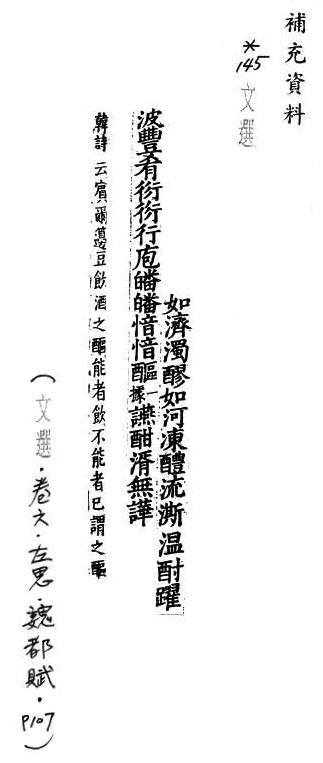 補充資料
*145 文選
如濟濁醪如河凍醴流澌温酎躍
波豐肴衍衍行庖皤皤愔愔醧一據讌酣湑無譁
韓詩云賓爾籩豆飲酒之醧能者飲不能者已謂之醧
（文選·卷六·左思·魏都賦·P107）